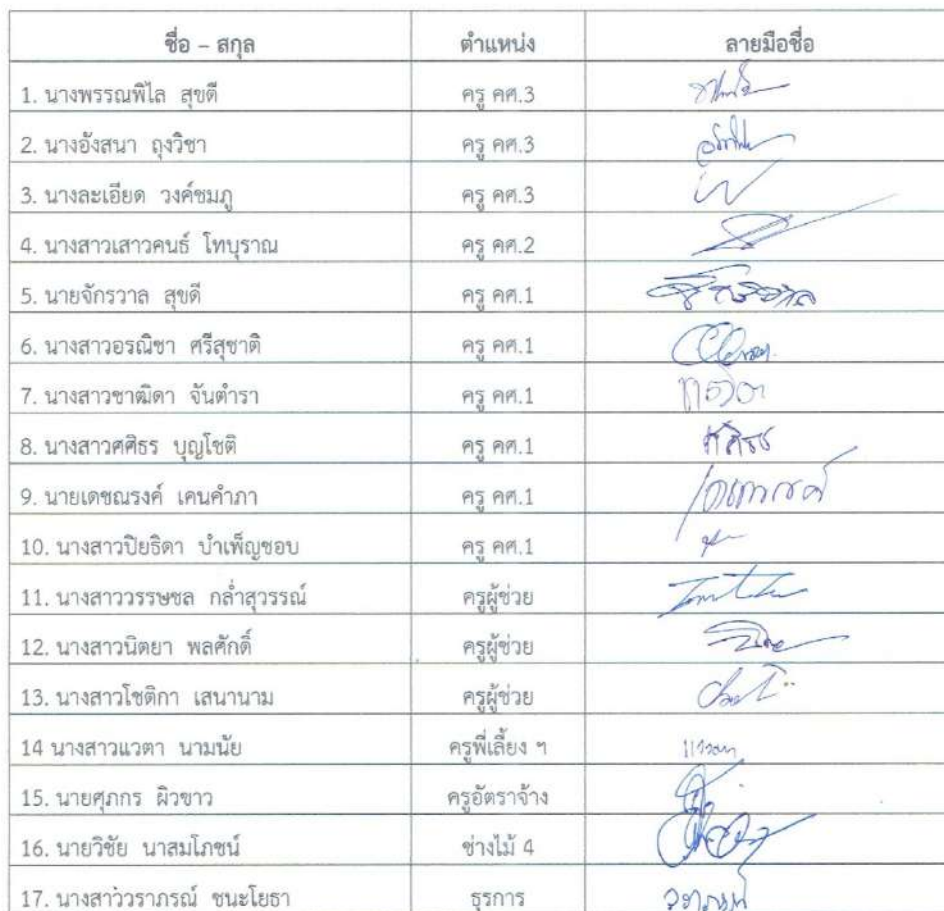 ชื่อ – สกุล ตำแหน่ง ลายมือชื่อ
1. นางพรรณพิไล สุขดี ครู คศ.3
2. นางอังสนา ถุงวิชา ครู คศ.3
3. นางละเอียด วงค์ชมภู ครู คศ.3
4. นางสาวเสาวคนธ์ โทบุราณ ครู คศ.2
5. นายจักรวาล สุขดี ครู คศ.1
6. นางสาวอรณิชา ศรีสุชาติ ครู คศ.1
7. นางสาวชาฒิดา จันตำรา ครู คศ.1
8. นางสาวศศิธร บุญโชติ ครู คศ.1 ศศิธร
9. นายเดชณรงค์ เคนคำภา ครู คศ.1
10. นางสาวปิยธิดา บำเพ็ญชอบ ครู คศ.1
11. นางสาววรรษชล กล่ำสุวรรณ์ ครูผู้ช่วย
12. นางสาวนิตยา พลศักดิ์ ครูผู้ช่วย
13. นางสาวโชติกา เสนานาม ครูผู้ช่วย
14 นางสาวแวตา นามนัย ครูพี่เลี้ยง ฯ แววตา
15. นายศุภกร ผิวขาว ครูอัตราจ้าง
16. นายวิชัย นาสมโภชน์ ช่างไม้ 4
17. นางสาวิวราภรณ์ ชนะโยธา ธุรการ วราภรณ์